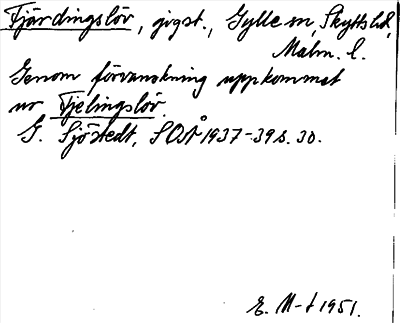 Fjärdingslöv, gigst., Gylle sn, Skytts hd,
Malm. l.
Genom förvanskning uppkommet
ur Fjelingslöv.
G. Sjöstedt, SOSÅ 1937-39 s. 30.
E. M-t 1951.